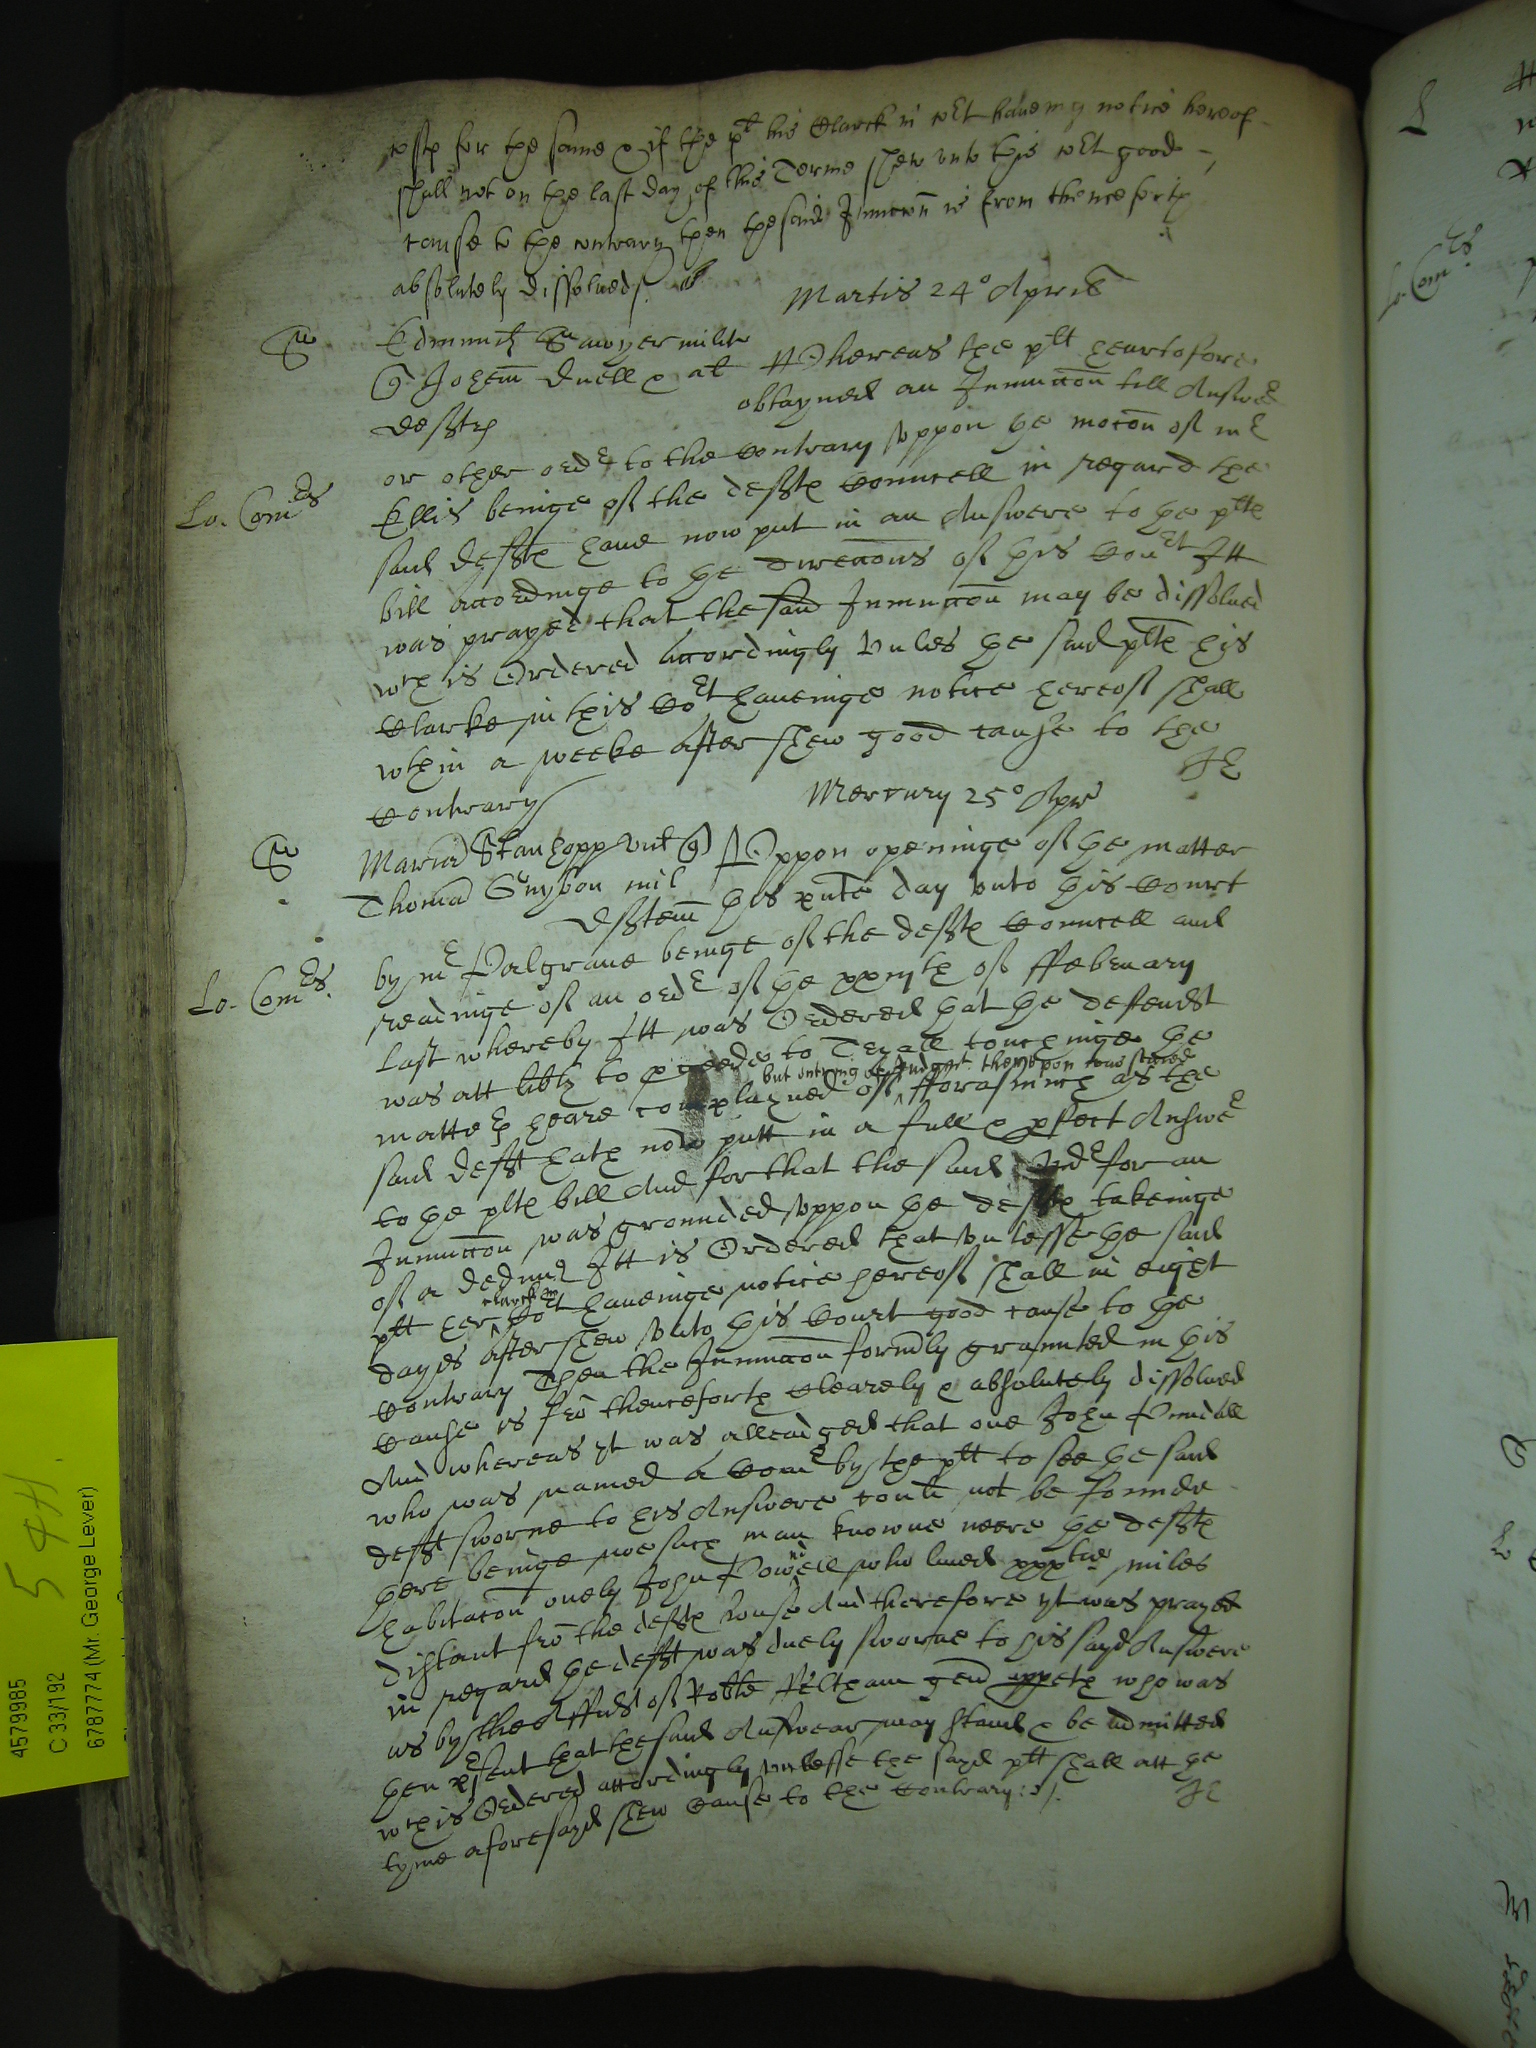 costs for the same & if the plt his Clarck in Cort haueing notice hereof
shall not on the last day of this Terme shew vnto this Cort good
cause to the contrary then the said Iniuncon is from thenceforth
absolutely dissolued
Martis 24° Aprilis
Edmund Sawyer milite
Johem Duell & al
defts
Whereas the plt heartofore
obtayned an Iniunccon till Answer
Lo. Comrs
or other order to the Contrary vppon the mocon of mr
Ellis beinge of the defts Councell in regard the
said defts haue now put in an Answere to the plts
bill accordinge to the direccons of this Court Itt
was prayed that the said Iniunccon may be dissolued
wch is Ordered Accordingly vnles the said plts his
Clarke in this Cort haueinge notice hereof shall
wthin a weeke after shew good cause to the
Contrary
Mercury 25° Apr
Maria Stanhopp vid
Thoma mil
deftem
Vppon openinge of the matter
this pnte day vnto this Court
Lo. Comrs.
by mr Palgraue beinge of the defts Councell and
readinge of an order of the xxiijth of ffebruary
last whereby Itt was Ordered that the defendt
was att libty to pceede to Tryall touchinge the
but entring of Judgmt therevpon was stayed
matters heare complayned of fforasmuch as the
said deft hath now putt in a full & pfect Answer
to the plts bill And for that the said Order for an
Iniunccon was grounded vppon the defts takeinge
of a Dedimus Itt is Ordered that vnlesse the said
clarck in
plt her Cort haueinge notice hereof shall in eight
dayes after shew vnto this Court good cause to the
Contrary Then the Iniunccon formerly graunted in this
Cause is fro thenceforth Clearely & absolutely dissolued
And whereas yt was alleadged that one John Powdall
who was named a Comr by the plt to see the said
deft sworne to his Answere could not be founde
there beinge noe such man knowne neere the defts
habitacon onely John Powell who liued miles
distant fro the defts house And therefore yt was prayed
in regard the deft was duely sworne to his sayd Answere
as by the Affidt of Robte Feltham gen appeth who was
then psent that the said Answear may stand & be admitted
wch is Ordered accordingly vnlesse the sayd plt shall att the
tyme aforesayd shew Cause to the Contrary
4579985
C 33/192
6787774 (Mr. George Lever)
544.